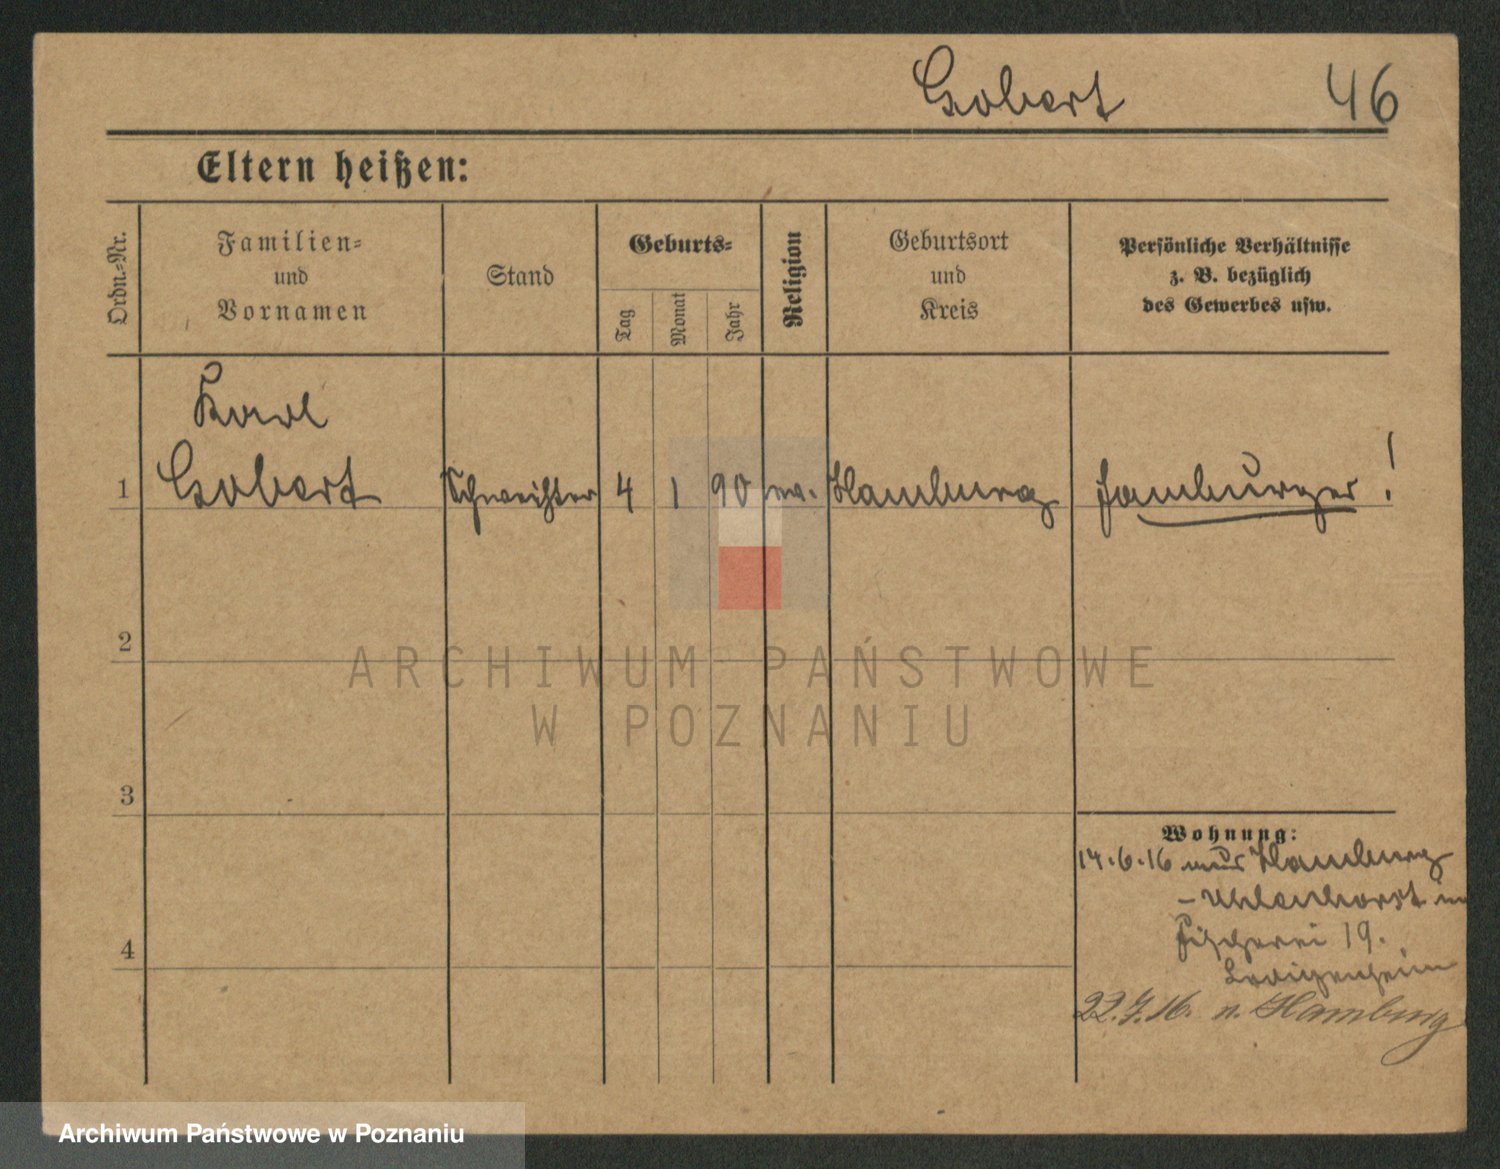 Gobert 46
Eltern heißen:
Ordn.-Nr.
Familien-
und
Vornamen
Stand
Geburts-
Tag
Monat
Jahr
Religion
Geburtsort
und
Kreis
Persönliche Verhältnisse
z. B. bezüglich
des Gewerbes usw.
Karl
1 Gobert 4 1 90 ev. Hamburg Hamburger!
2
3
4
Wohnung:
14.6.16 aus Hamburg
- Uhlenhorst
19.
22.7.16. n. Hamburg
ARCHIWUM PAŃSTWOWE
W POZNANIU
Archiwum Państwowe w Poznaniu